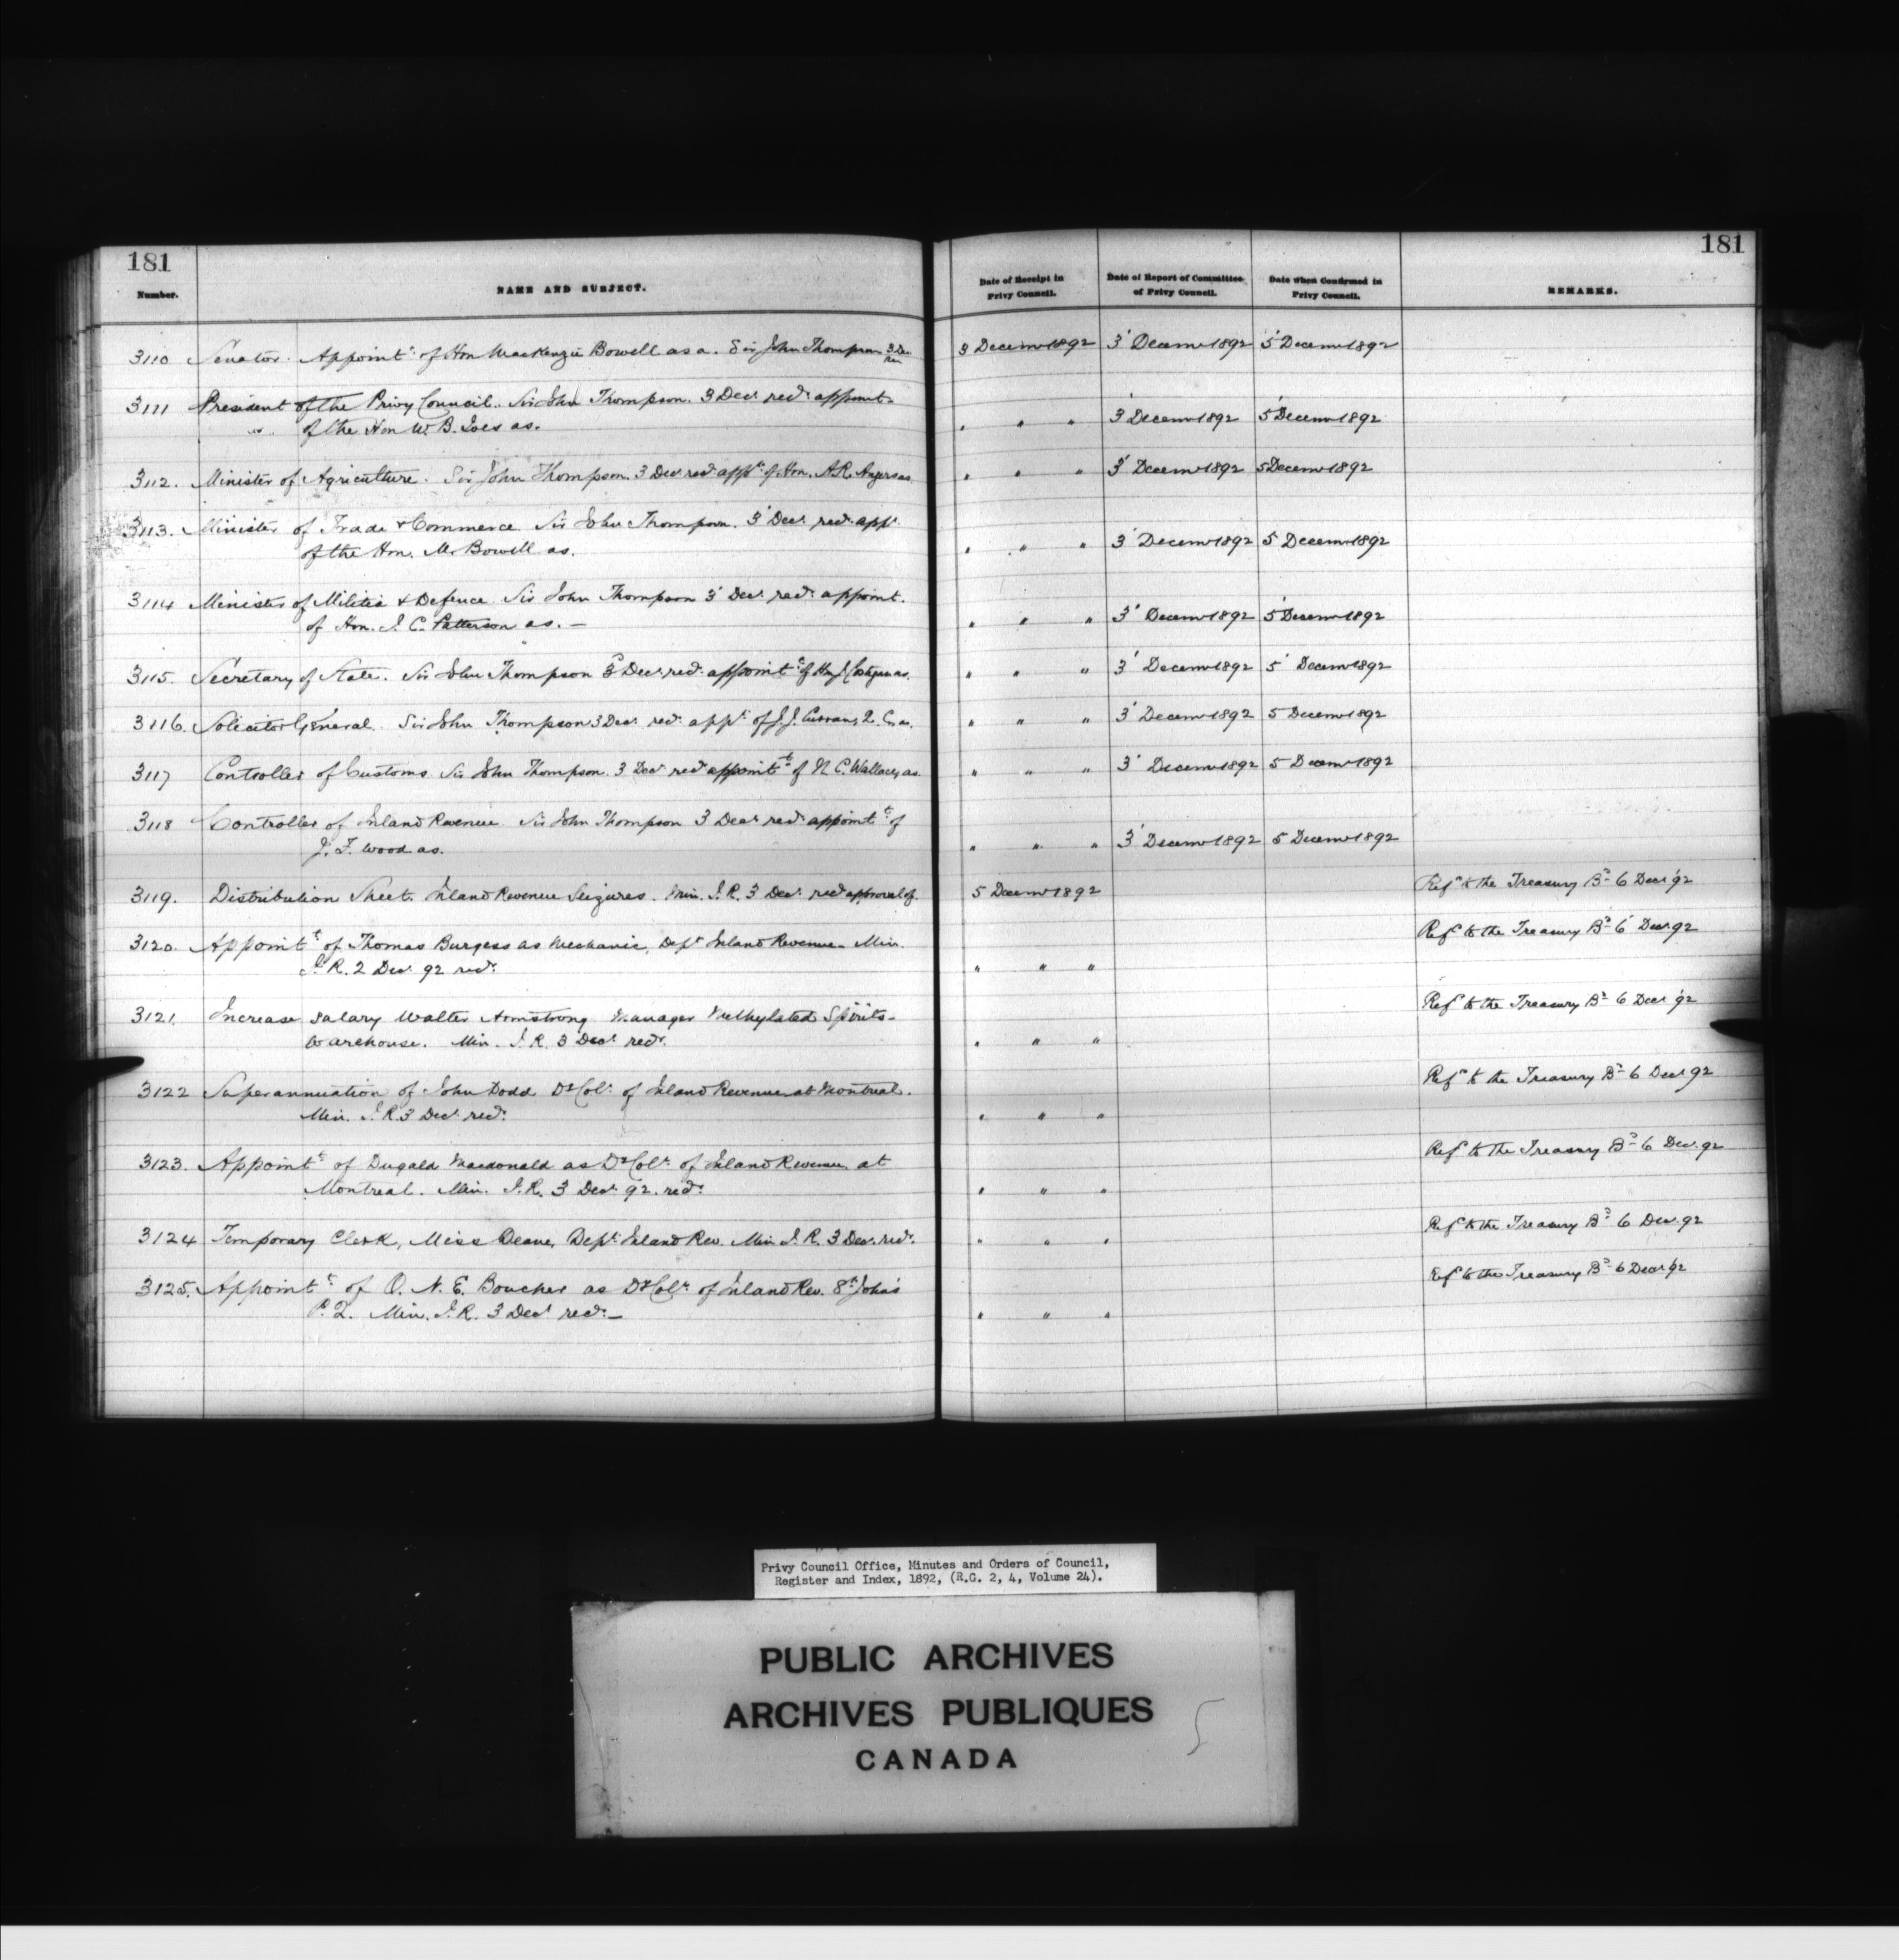 181
Number.
NAME AND SUBJECT.
3110 Senator. Appointt. of Hon Mackenzie Bowell as a. Sir John Thompson 3 Dec rec
3111 President of the Privy Council. Sir John Thompson. 3 Decr. recd. appoint-
" of the Hon W. B. Ives as.
3112. Minister of Agriculture. Sir John Thompson. 3 Decr recd appt. of Hon. A.R. Angers as
3113. Minister of Trade & Commerce Sir John Thompson. 3' Decr. recd. appt.
of the Hon. M. Bowell as.
3114 Minister of Militia & Defence. Sir John Thompson 3' Decr. recd. appoint.
of Hon. J. C. Patterson as. —
3115. Secretary of State. Sir John Thompson 3 Decr. recd. appointt. of Hon J Costigan as.
3116. Solicitor General. Sir John Thompson 3 Decr. recd. appt. of J. J. Curran, Q. C. as.
3117 Controller of Customs. Sir John Thompson. 3 Decr recd appointt of N. C. Wallace, as.
3118 Controller of Inland Revenue. Sir John Thompson 3 Decr recd. appointt. of
J. F. Wood as.
3119. Distribution Sheet. Inland Revenue Seizures. Min. I. R. 3 Decr. recd approval of.
3120. Appointt. of Thomas Burgess as Mechanic, Dept Inland Revenue— Min.
I. R. 2 Decr. 92 recd.
3121. Increase salary Walter Armstrong Manager Methylated Spirits-
Warehouse. Min. I. R. 3 Decr. recd.
3122 Superannuation of John Dodd Dy Colr. of Inland Revenue at Montreal.
Min. I. R. 3 Decr. recd.
3123. Appointt. of Dugald Macdonald as Dy Colr. of Inland Revenue at
Montreal. Min. I. R. 3 Decr. 92. recd.
3124 Temporary Clerk, Miss Deane, Dept. Inland Rev. Min I. R. 3 Decr. recd.
3125. Appointt. of O. N. E. Boucher as Dy Colr. of Inland Rev. St. John's
P. Q. Min. I. R. 3 Decr recd.—
181
Date of Receipt in Privy Council.
Date of Report of Committee of Privy Council.
Date when Confirmed in Privy Council.
REMARKS.
3 Decemr 1892 3' Decemr 1892 5' Decemr 1892
" " " 3' Decemr 1892 5' Decemr 1892
" " " 3' Decemr 1892 5 Decemr 1892
" " " 3' Decemr 1892 5 Decemr 1892
" " " 3' Decemr 1892 5' Decemr 1892
" " " 3' Decemr 1892 5' Decemr 1892
" " " 3' Decemr 1892 5 Decemr 1892
" " " 3' Decemr 1892 5 Decemr 1892
" " " 3' Decemr 1892 5 Decemr 1892
5 Decemr 1892 Refd to the Treasury Bd 6 Decr '92
Refd to the Treasury Bd 6' Decr 92
" " "
Refd to the Treasury Bd 6 Decr '92
" " "
Refd to the Treasury Bd 6 Decr 92
" " "
Refd to the Treasury Bd 6 Decr. 92
" " "
Refd to the Treasury Bd 6 Decr. 92
" " "
Refd to the Treasury Bd 6 Decr '92
" " "
Privy Council Office, Minutes and Orders of Council,
Register and Index, 1892, (R.G. 2, 4, Volume 24).
PUBLIC ARCHIVES
ARCHIVES PUBLIQUES
CANADA